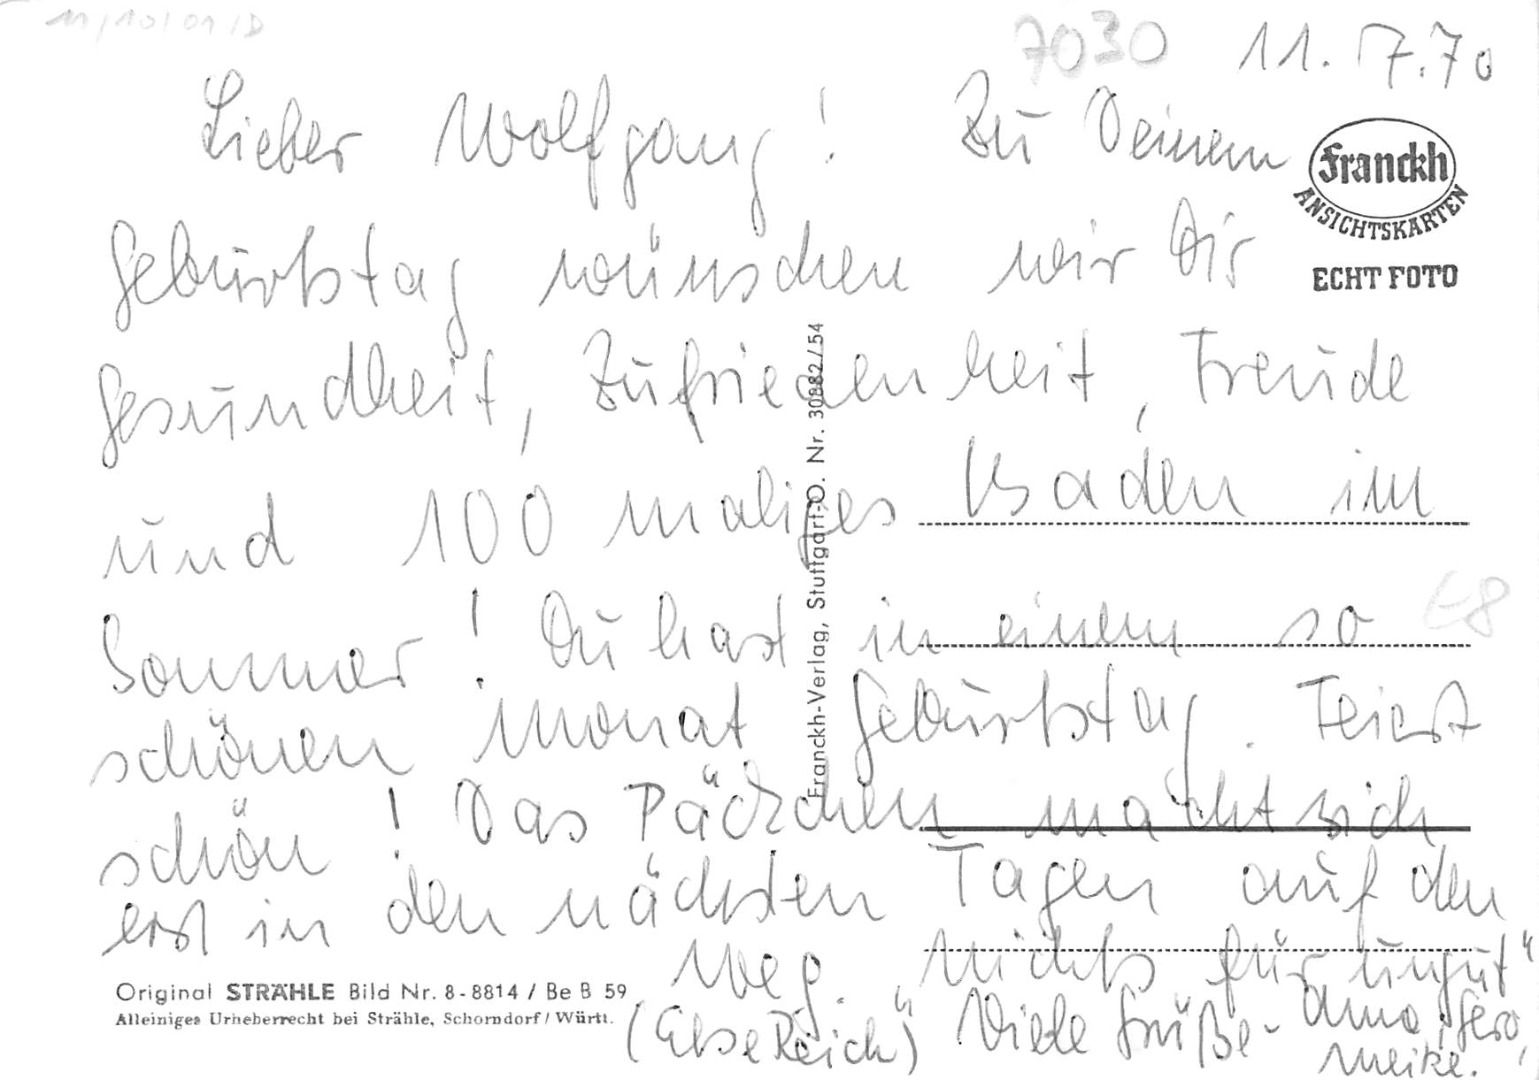 11/10/01/D
7030
11. 7.70
Lieber Wolfgang! Zu Deinem
Franckh
ANSICHTSKARTEN
ECHT FOTO
Geburtstag wünschen wir Dir
Gesundheit, Zufriedenheit, Freude
und 100 maliges Baden im
Sommer! Du hast in einem so
68
schönen Monat Geburtstag. Feierst
schön! Das Päckchen macht sich
erst in den nächsten Tagen auf den
Weg. "Nichts für ungut"
(Else Reich) Viele Grüße - Gero,
Meike.
Franckh-Verlag, Stuttgart-O. Nr. 30882/54
Original STRÄHLE Bild Nr. 8-8814 / Be B 59
Alleiniges Urheberrecht bei Strähle, Schorndorf/Württ.